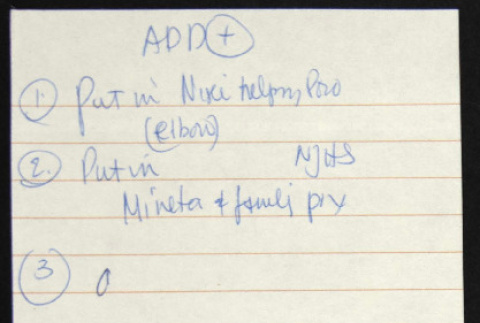 ADD +
1. Put in Niki helping Pozo
(elbow)
2. Put in NJHS
Mineta & family pix
3